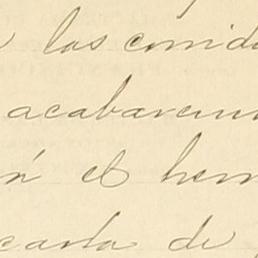 las comida
acabaremo
n el herm
carta de